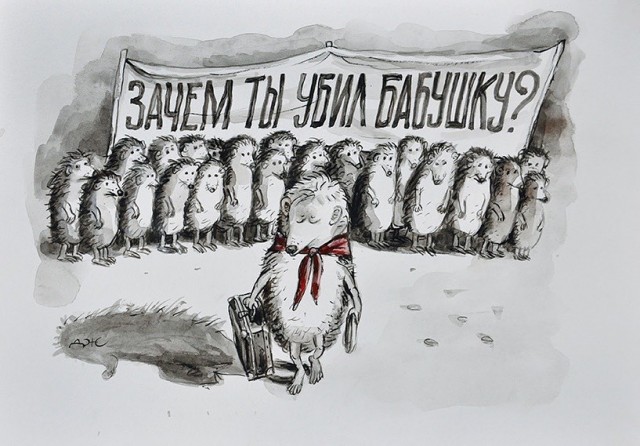 ЗАЧЕМ ТЫ УБИЛ БАБУШКУ?
АЖ